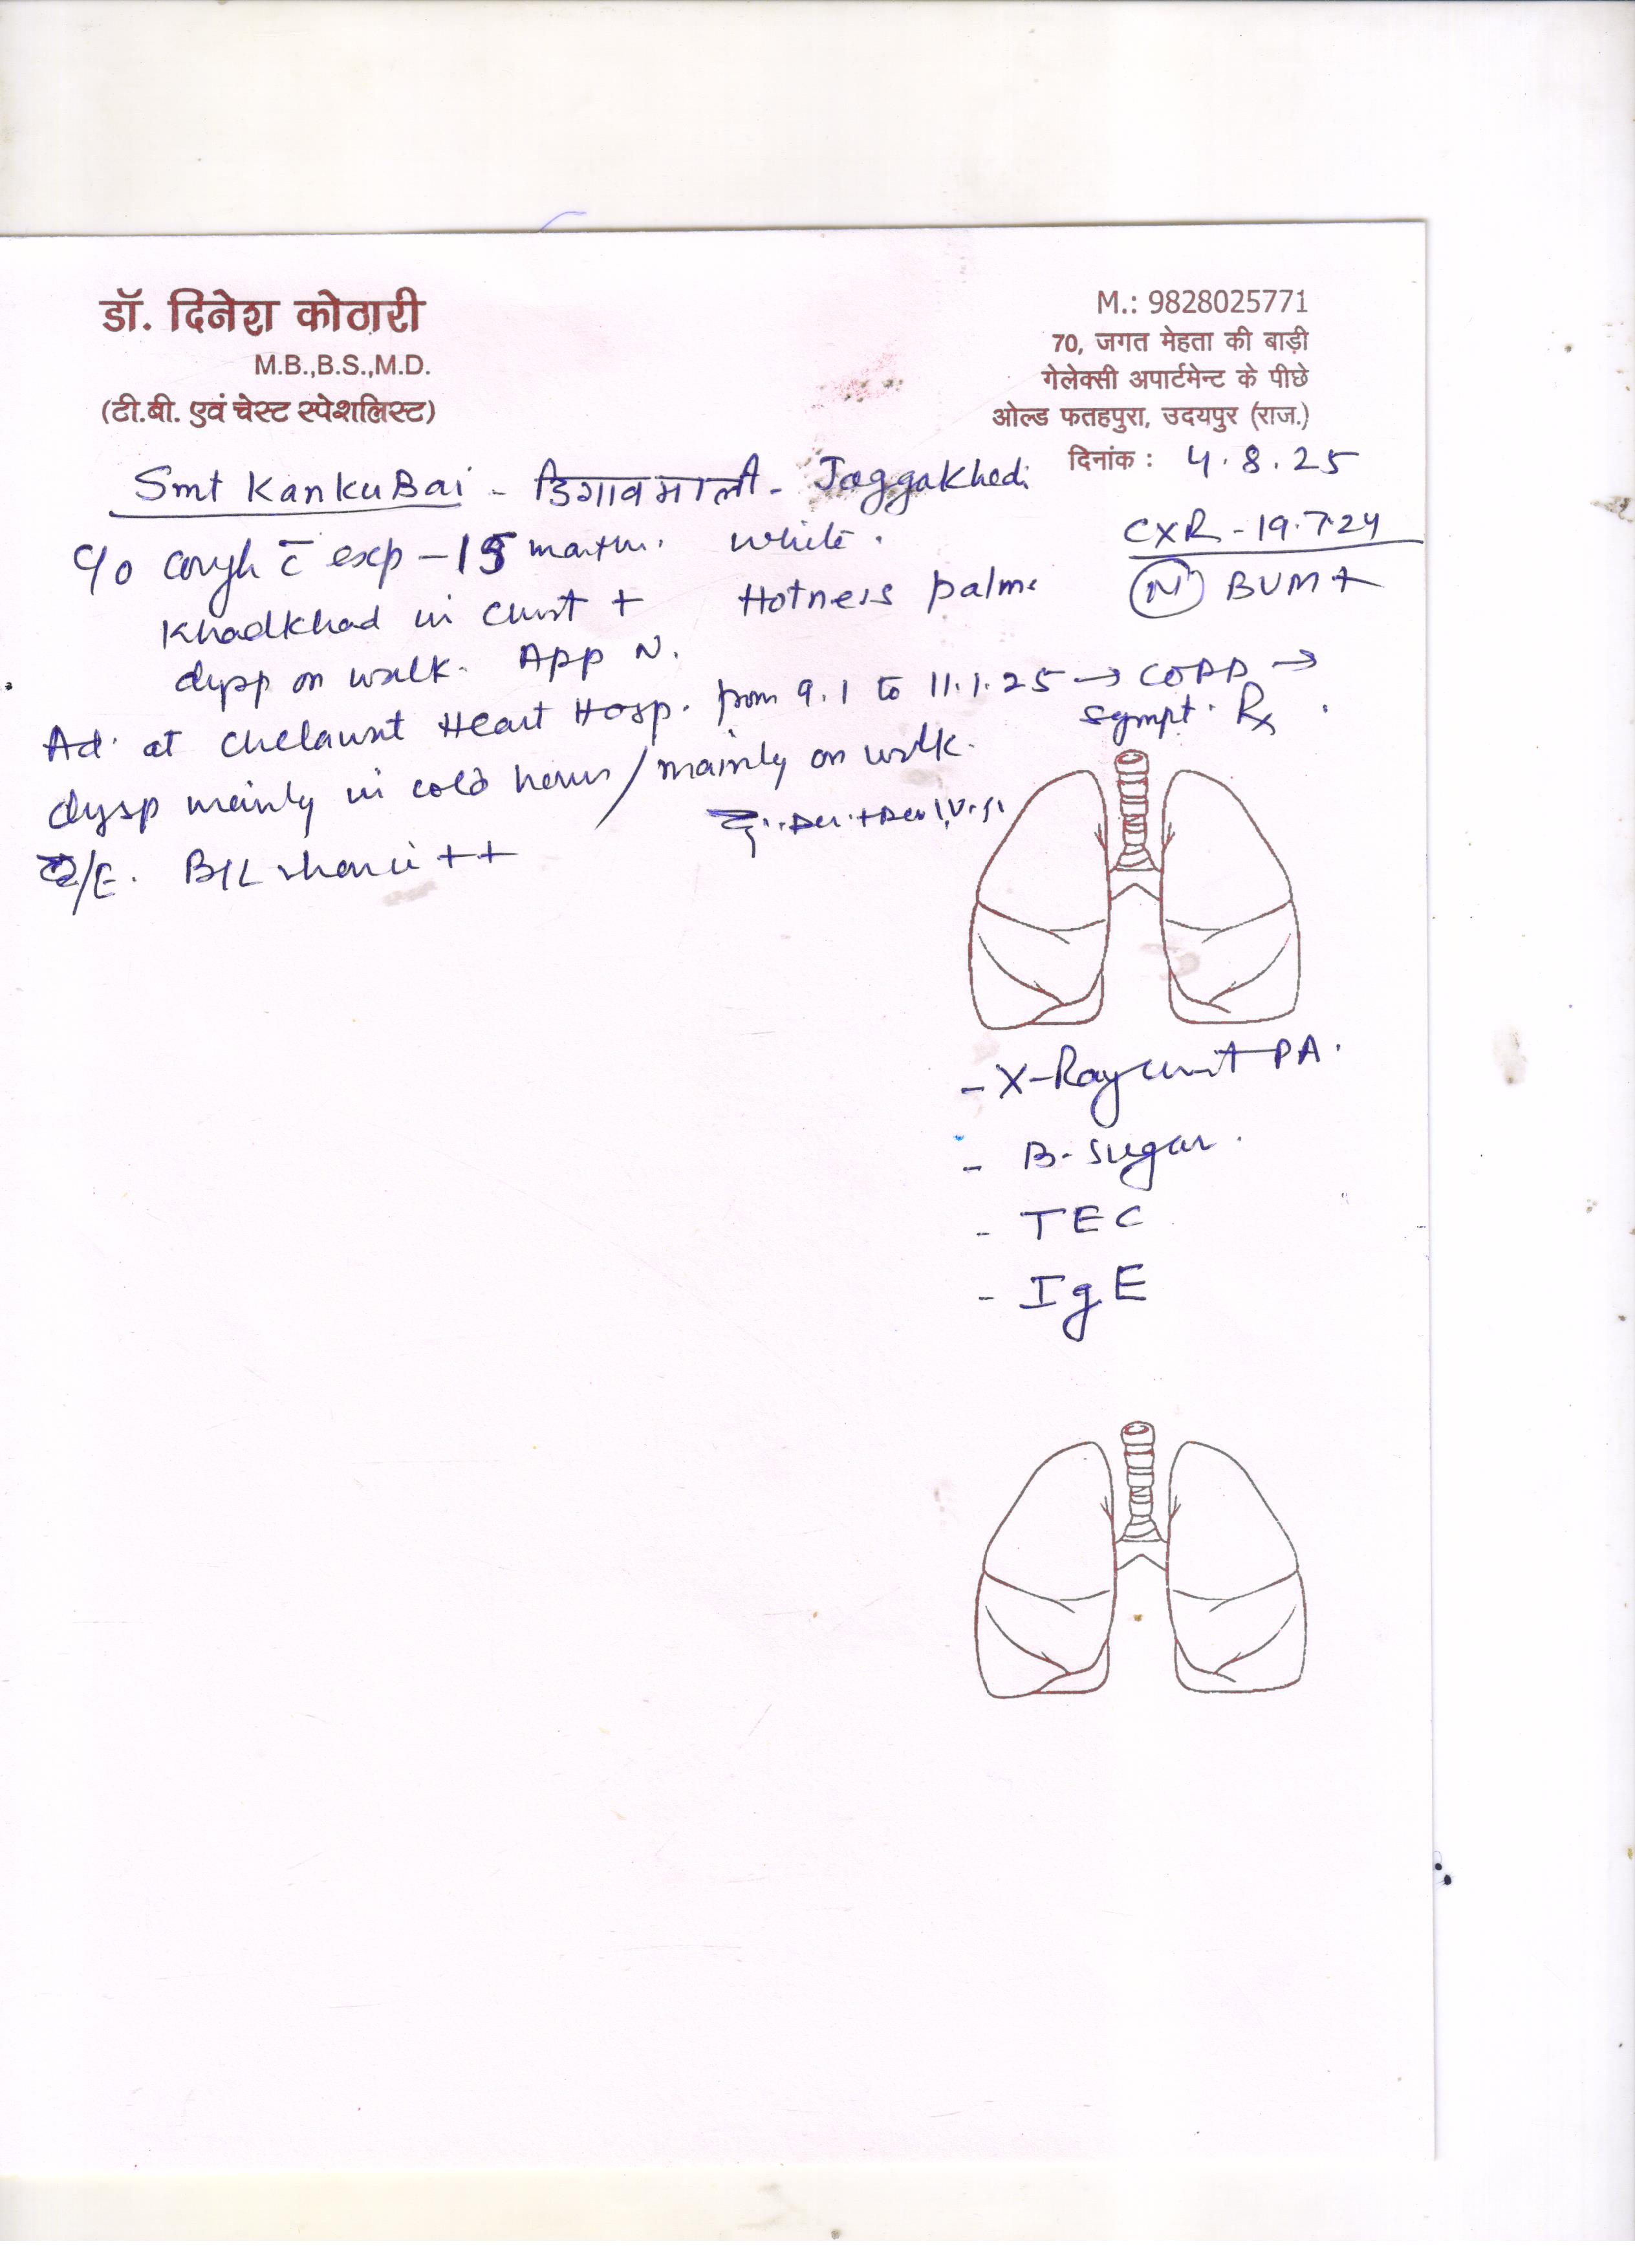 डॉ. दिनेश कोठारी
M.B.,B.S.,M.D.
(टी.बी. एवं चेस्ट स्पेशलिस्ट)
M.: 9828025771
70, जगत मेहता की बाड़ी
गेलेक्सी अपार्टमेन्ट के पीछे
ओल्ड फतहपुरा, उदयपुर (राज.)
दिनांक : 4.8.25
Smt Kanku Bai - डिगाव माली - Jaggakhedi
CXR - 19.7.24
(N) BVM +
C/o cough c̄ exp - 15 months. white.
Khadkhad in chest + Hotness palms
dysp on walk. App N.
Ad. at Heart Hosp. from 9.1 to 11.1.25 → COPD →
sympt. Rx.
dysp mainly in cold hours / mainly on walk.
O/E. B/L rhonchi ++
- X-Ray chest PA.
- B. sugar.
- TEC
- IgE